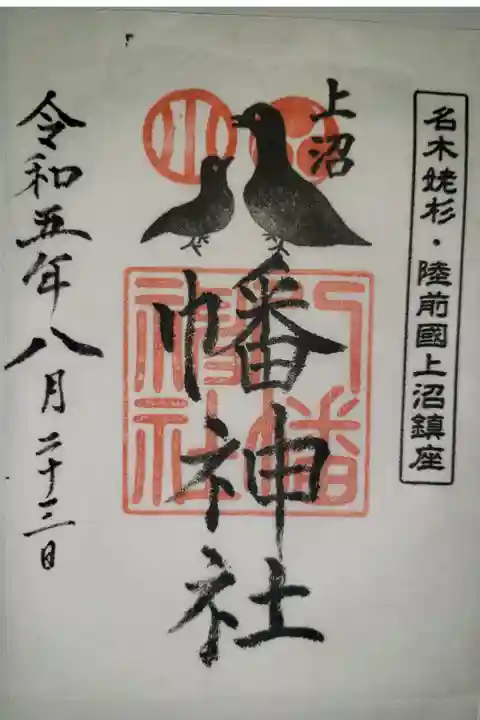 名木姥杉・陸前國上沼鎮座
上沼
幡神社
八幡神社
令和五年八月二十三日